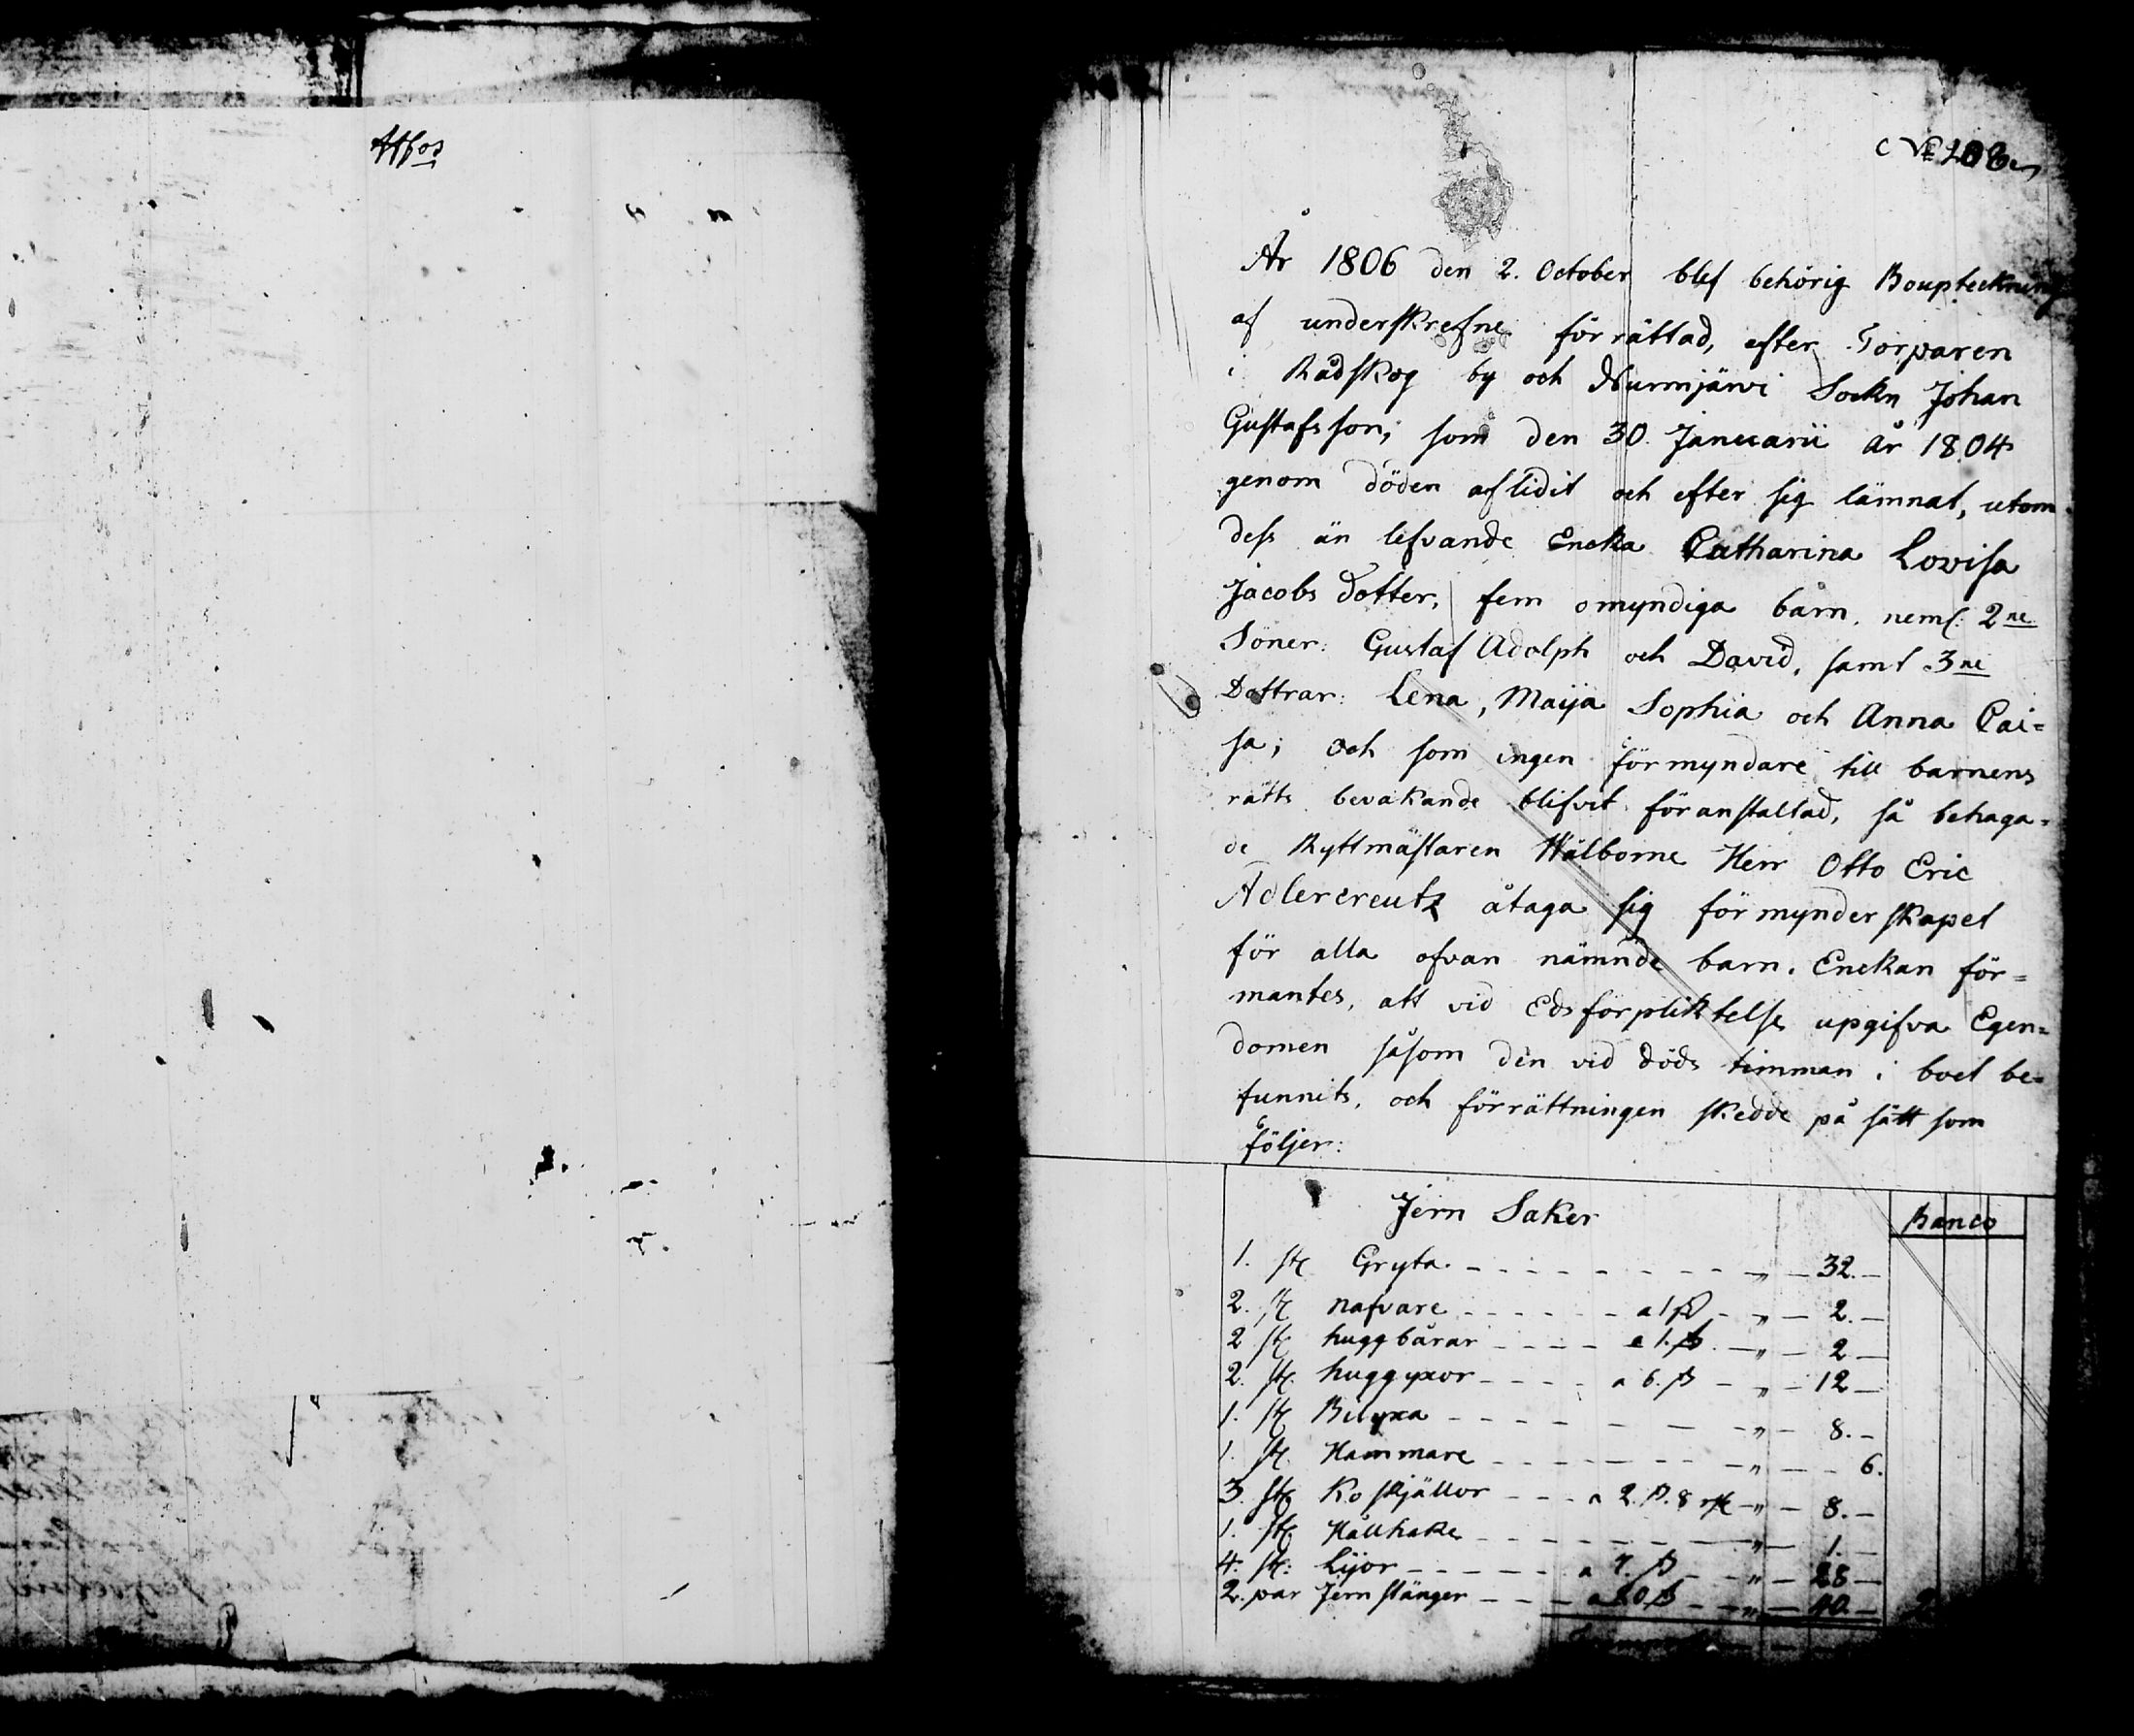 År 1806 den 2. October blef behörig Bouptekning
af underskrefne förrättad, efter Torparen
i Rådskog by och Nurmjärvi Sockn Johan
Gustafsson, som den 30 Januarii år 1804
genom döden aflidit och efter sig lämnat, utom
dess än lefvande Encka Catharina Lovisa
Jacobs dotter, fem omyndiga barn, neml: 2ne
Söner: Gustaf Adolph och David, samt 3ne
Döttrar: Lena, Maija Sophia och Anna Cai=
sa; och som ingen förmyndare till barnens
rätts bevakande blifvit föranstaltad, så behaga=
de Ryttmästaren Wälborne Herr Otto Eric
Adlercreutz åtaga sig förmynderskapet
för alla ofvan nämnde barn. Enckan för=
mantes, att vid Edsförpliktelse upgifva Egen=
domen såsom den vid döds timman i boet be=
funnits, och förrättningen skedde på sätt som
följer:
Jern Saker Banco
1. st Gryta - - - „ - 32. -
2. st nafvare - - - a 1 ß - „ - 2. -
2 st huggbårar - - - a 1. ß. - „ - 2 -
2. st huggyxor - - - a 6. ß - „ - 12 -
1. st Bilyxa - - - „ - 8. -
1. st Hammare - - - „ - - 6.
3. st Koskjällor - - - a 2. ß. 8 rst - „ - 8. -
1. st Hållhake - - - „ - 1. -
4. st: Lijor - - - a 7. ß - „ - 28 -
2. par Jern stänger - - - a 20 ß - „ - 40. -